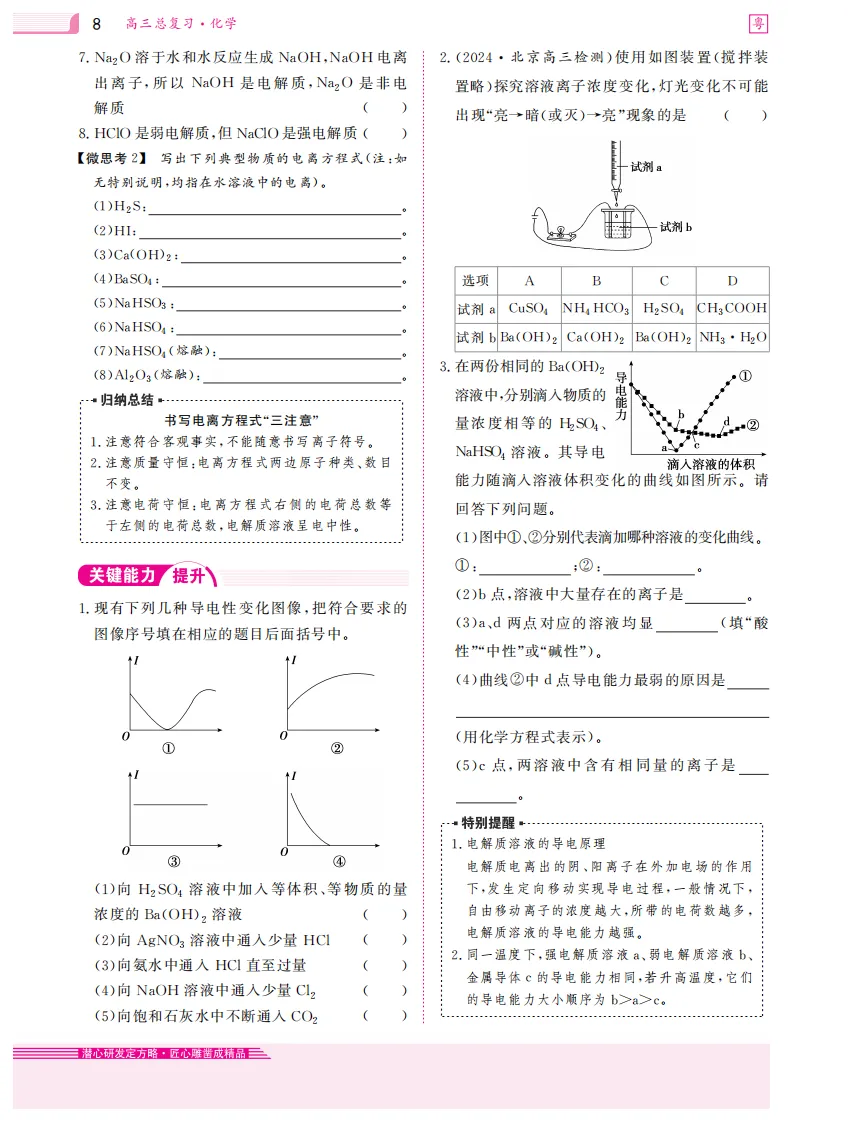 8 高三总复习·化学
粤
7. Na₂O 溶于水和水反应生成 NaOH,NaOH 电离
出离子,所以 NaOH 是电解质,Na₂O 是非电
解质 (  )
8. HClO 是弱电解质,但 NaClO 是强电解质 (  )
【微思考 2】 写出下列典型物质的电离方程式(注:如
无特别说明,均指在水溶液中的电离)。
(1)H₂S:____________。
(2)HI:____________。
(3)Ca(OH)₂:____________。
(4)BaSO₄:____________。
(5)NaHSO₃:____________。
(6)NaHSO₄:____________。
(7)NaHSO₄(熔融):____________。
(8)Al₂O₃(熔融):____________。
归纳总结
书写电离方程式“三注意”
1. 注意符合客观事实,不能随意书写离子符号。
2. 注意质量守恒:电离方程式两边原子种类、数目
不变。
3. 注意电荷守恒:电离方程式右侧的电荷总数等
于左侧的电荷总数,电解质溶液呈电中性。
关键能力 提升
1. 现有下列几种导电性变化图像,把符合要求的
图像序号填在相应的题目后面括号中。
I
O
①
I
O
②
I
O
③
I
O
④
(1)向 H₂SO₄ 溶液中加入等体积、等物质的量
浓度的 Ba(OH)₂ 溶液 (  )
(2)向 AgNO₃ 溶液中通入少量 HCl (  )
(3)向氨水中通入 HCl 直至过量 (  )
(4)向 NaOH 溶液中通入少量 Cl₂ (  )
(5)向饱和石灰水中不断通入 CO₂ (  )
2. (2024·北京高三检测)使用如图装置(搅拌装
置略)探究溶液离子浓度变化,灯光变化不可能
出现“亮→暗(或灭)→亮”现象的是 (  )
试剂 a
试剂 b
选项 A B C D
试剂 a CuSO₄ NH₄HCO₃ H₂SO₄ CH₃COOH
试剂 b Ba(OH)₂ Ca(OH)₂ Ba(OH)₂ NH₃·H₂O
3. 在两份相同的 Ba(OH)₂
溶液中,分别滴入物质的
量浓度相等的 H₂SO₄、
NaHSO₄ 溶液。其导电
导电能力
①
②
a
b
c
d
滴入溶液的体积
能力随滴入溶液体积变化的曲线如图所示。请
回答下列问题。
(1)图中①、②分别代表滴加哪种溶液的变化曲线。
①:________;②:________。
(2)b 点,溶液中大量存在的离子是______。
(3)a、d 两点对应的溶液均显______(填“酸
性”“中性”或“碱性”)。
(4)曲线②中 d 点导电能力最弱的原因是____
____________
(用化学方程式表示)。
(5)c 点,两溶液中含有相同量的离子是____
______。
特别提醒
1. 电解质溶液的导电原理
电解质电离出的阴、阳离子在外加电场的作用
下,发生定向移动实现导电过程,一般情况下,
自由移动离子的浓度越大,所带的电荷数越多,
电解质溶液的导电能力越强。
2. 同一温度下,强电解质溶液 a、弱电解质溶液 b、
金属导体 c 的导电能力相同,若升高温度,它们
的导电能力大小顺序为 b>a>c。
潜心研发定方略·匠心雕凿成精品